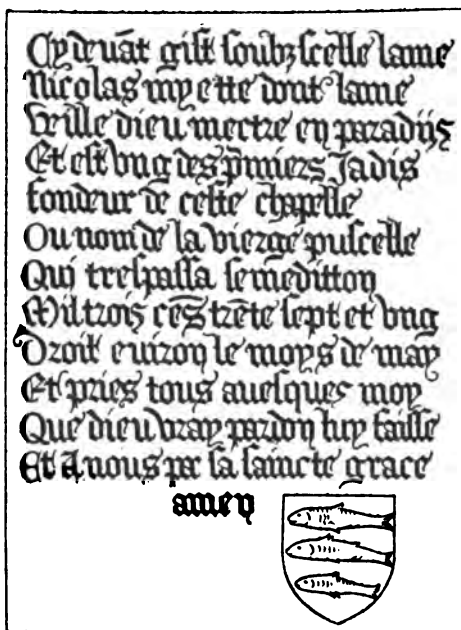 Cy deuāt gist soubz scelle lame
Nicolas myette dont lame
Veille dieu mectre en paradijs
Et est vng des p̄miers Jadis
fondeur de ceste chapelle
Ou nom de la vierge puscelle
Qui trespassa se meditton
Mil trois cēs trēte sept et vng
Droit enuiron le moys de may
Et pries tous auesques moy
Que dieu vray pardon luy faisse
Et A nous par sa saincte grace
amen